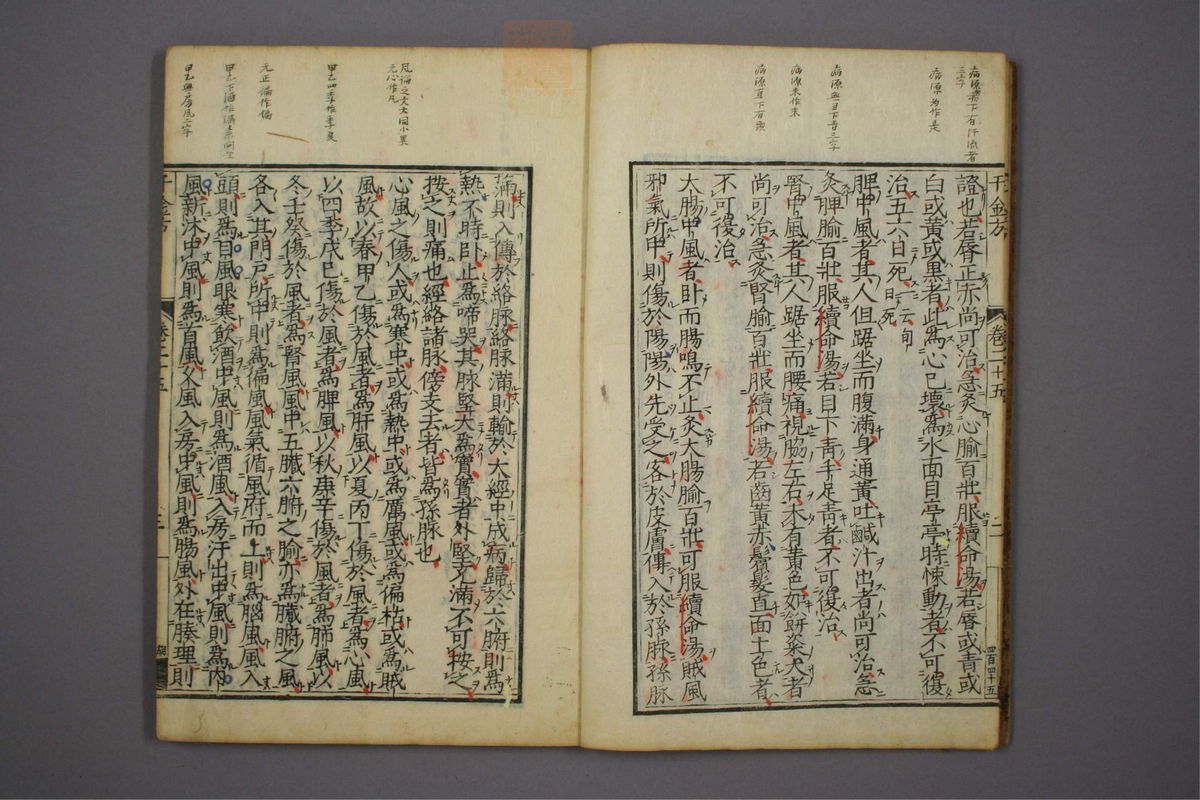 病源為作是
病源無目下青三字
病源未作來
證也若唇正赤尚可治急灸心腧百壯服續命湯若唇或青或
白或黃或黑者此為心已壞為水面目亭亭時悚動者不可復
治五六日死一云旬日死
脾中風者其人但踞坐而腹滿身通黃吐鹹汁出者尚可治急
灸脾腧百壯服續命湯若目下青手足青者不可復治
腎中風者其人踞坐而腰痛視脇左右未有黃色如餅粢大者
尚可治急灸腎腧百壯服續命湯若齒黃赤鬢髮直面土色者
不可復治
大腸中風者臥而腸鳴不止灸大腸腧百壯可服續命湯賊風
邪氣所中則傷於陽陽外先受之客於皮膚傳入於孫脉孫脉
千金方
卷二十五
二
四百四十五
甲乙四季作季夏
元正偏作徧
滿則入傳於絡脉絡脉滿則輸於大經中成病歸於六腑則為
熱不時臥止為啼哭其脉堅大為實實者外堅充滿不可按之
按之則痛也經絡諸脉傍支去者皆為孫脉也
心風之傷人或為寒中或為熱中或為厲風或為偏枯或為賊
風故以春甲乙傷於風者為肝風以夏丙丁傷於風者為心風
以四季戊己傷於風者為脾風以秋庚辛傷於風者為肺風以
冬壬癸傷於風者為腎風風中五臟六腑之腧亦為臟腑之風
各入其門戶所中則為偏風風氣循風府而上則為腦風風入
頭則為目風眼寒飲酒中風則為酒風入房汗出中風則為內
風新沐中風則為首風又風入房中風則為腸風外在腠理則
千金方
卷二十五
三